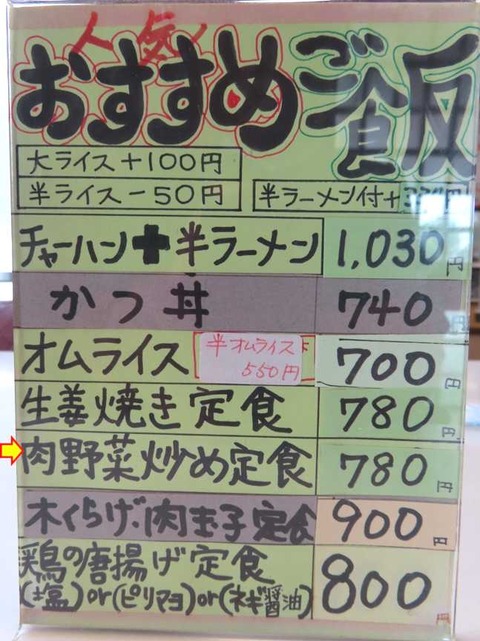 人気!
おすすめご飯
大ライス+100円
半ライス-50円
半ラーメン付+
チャーハン+半ラーメン 1,030円
かつ丼 740円
オムライス 半オムライス 550円 700円
生姜焼き定食 780円
肉野菜炒め定食 780円
木くらげ肉玉子定食 900円
鶏の唐揚げ定食 800円
(塩)or(ピリマヨ)or(ネギ醤油)